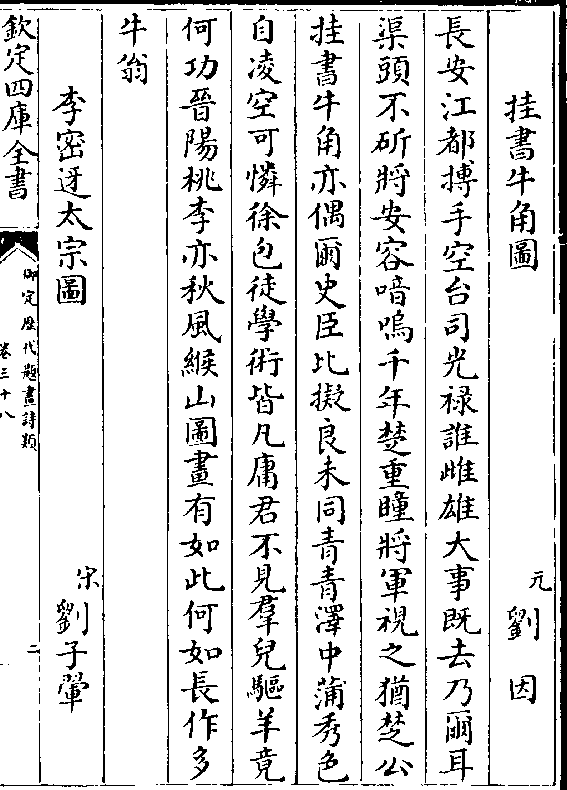 挂書牛角圖
元劉因
長安江都搏手空台司光禄誰雌雄大事既去乃爾耳
渠頭不斫將安容喑嗚千年楚重瞳將軍視之猶楚公
挂書牛角亦偶爾史臣比擬良未同青青澤中蒲秀色
自凌空可憐徐包徒學術皆凡庸君不見羣兒驅羊竟
何功晉陽桃李亦秋風緱山圖畫有如此何如長作多
牛翁
李密迓太宗圖
宋劉子翬
欽定四庫全書
御定歴代題畫詩類
卷三十八
二